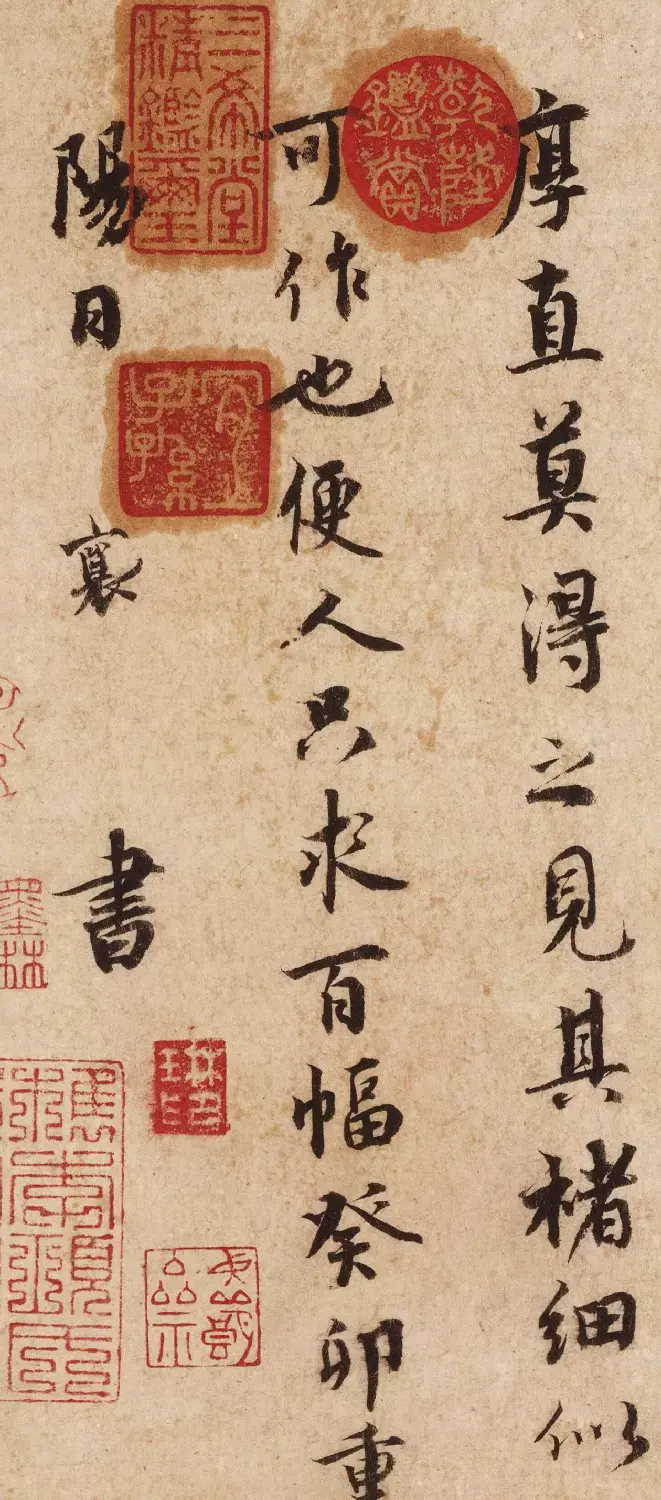 厚直莫得之見其楮細似
可作也便人只求百幅癸卯重
陽日 襄 書
乾隆鑑賞
三希堂精鑑璽
宜子孫
墨林